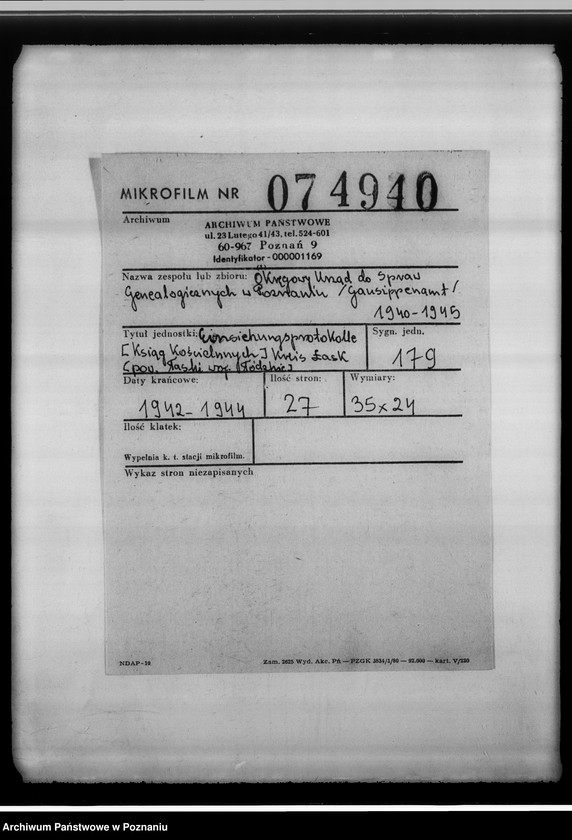 MIKROFILM NR 074940
Archiwum
ARCHIWUM PAŃSTWOWE
ul. 23 Lutego 41/43, tel. 524-601
60-967 Poznań 9
Identyfikator - 000001169
Nazwa zespołu lub zbioru: Okręgowy Urząd do Spraw
Genealogicznych w Poznaniu /Gausippenamt/
1940-1945
Tytuł jednostki: Einsichungsprotokolle
[Ksiąg Kościelnych] Kreis Łask
[pow. Łaski woj. Łódzkie]
Sygn. jedn.
179
Daty krańcowe:
1942-1944
Ilość stron:
27
Wymiary:
35x24
Ilość klatek:
Wypełnia k. t. stacji mikrofilm.
Wykaz stron niezapisanych
NDAP-19
Zam. 2625 Wyd. Akc. Pń — PZGK
kart. V/250
Archiwum Państwowe w Poznaniu